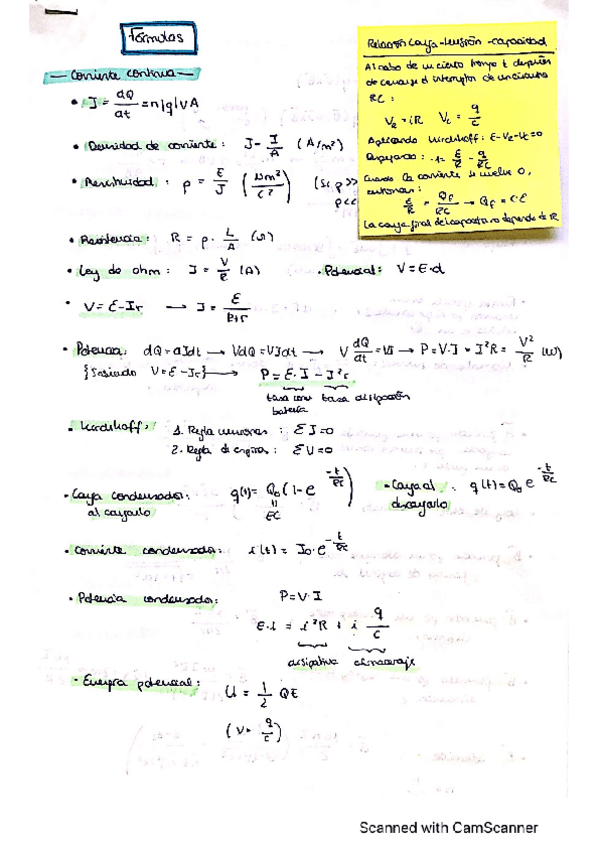 Fórmulas
— Corriente continua —
• I = dQ/dt = n|q|vA
• Densidad de corriente : J = I/A (A/m²)
• Resistividad : ρ = E/J (Nm²/C²) (Si ρ >>
ρ <<
• Resistencia : R = ρ · L/A (Ω)
• Ley de ohm : I = V/R (A) • Potencial : V = E·d
• V = ε - Ir → I = ε/R+r
• Potencia : dQ = Idt → VdQ = VIdt → V dQ/dt = VI → P = V·I = I²R = V²/R (W)
{Sabiendo V = ε - Ir} → P = ε·I - I²r
tasa conv batería tasa disipación
• Kirchhoff : 1. Regla uniones : Σ I = 0
2. Regla de espiras : Σ V = 0
• Carga condensador : q(t) = Q₀ (1 - e^(-t/RC)) • Carga al : q(t) = Q₀ e^(-t/RC)
al cargarlo εC descargarlo
• Corriente condensador : i(t) = I₀ · e^(-t/RC)
• Potencia condensador : P = V·I
ε·i = i²R + i q/C
disipativa almacenaje
• Energía potencial : U = 1/2 Qε
(V = q/C)
Relación Carga-tensión-capacidad
Al cabo de un cierto tiempo t después
de cerrarse el interruptor de un circuito
RC :
V_R = iR V_C = q/C
Aplicando Kirchhoff : ε - V_R - V_C = 0
Despejando : i = ε/R - q/RC
Cuando la corriente se vuelve 0,
entonces :
ε/R = Q_f/RC → Q_f = C·ε
La carga final del capacitor no depende de R
Scanned with CamScanner